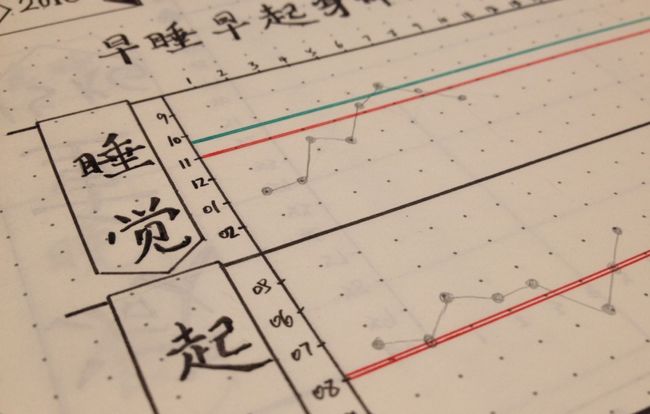 早睡早起身
1 2 3 4 5 6 7 8
睡觉
9
10
11
12
01
02
起
05
06
07
08